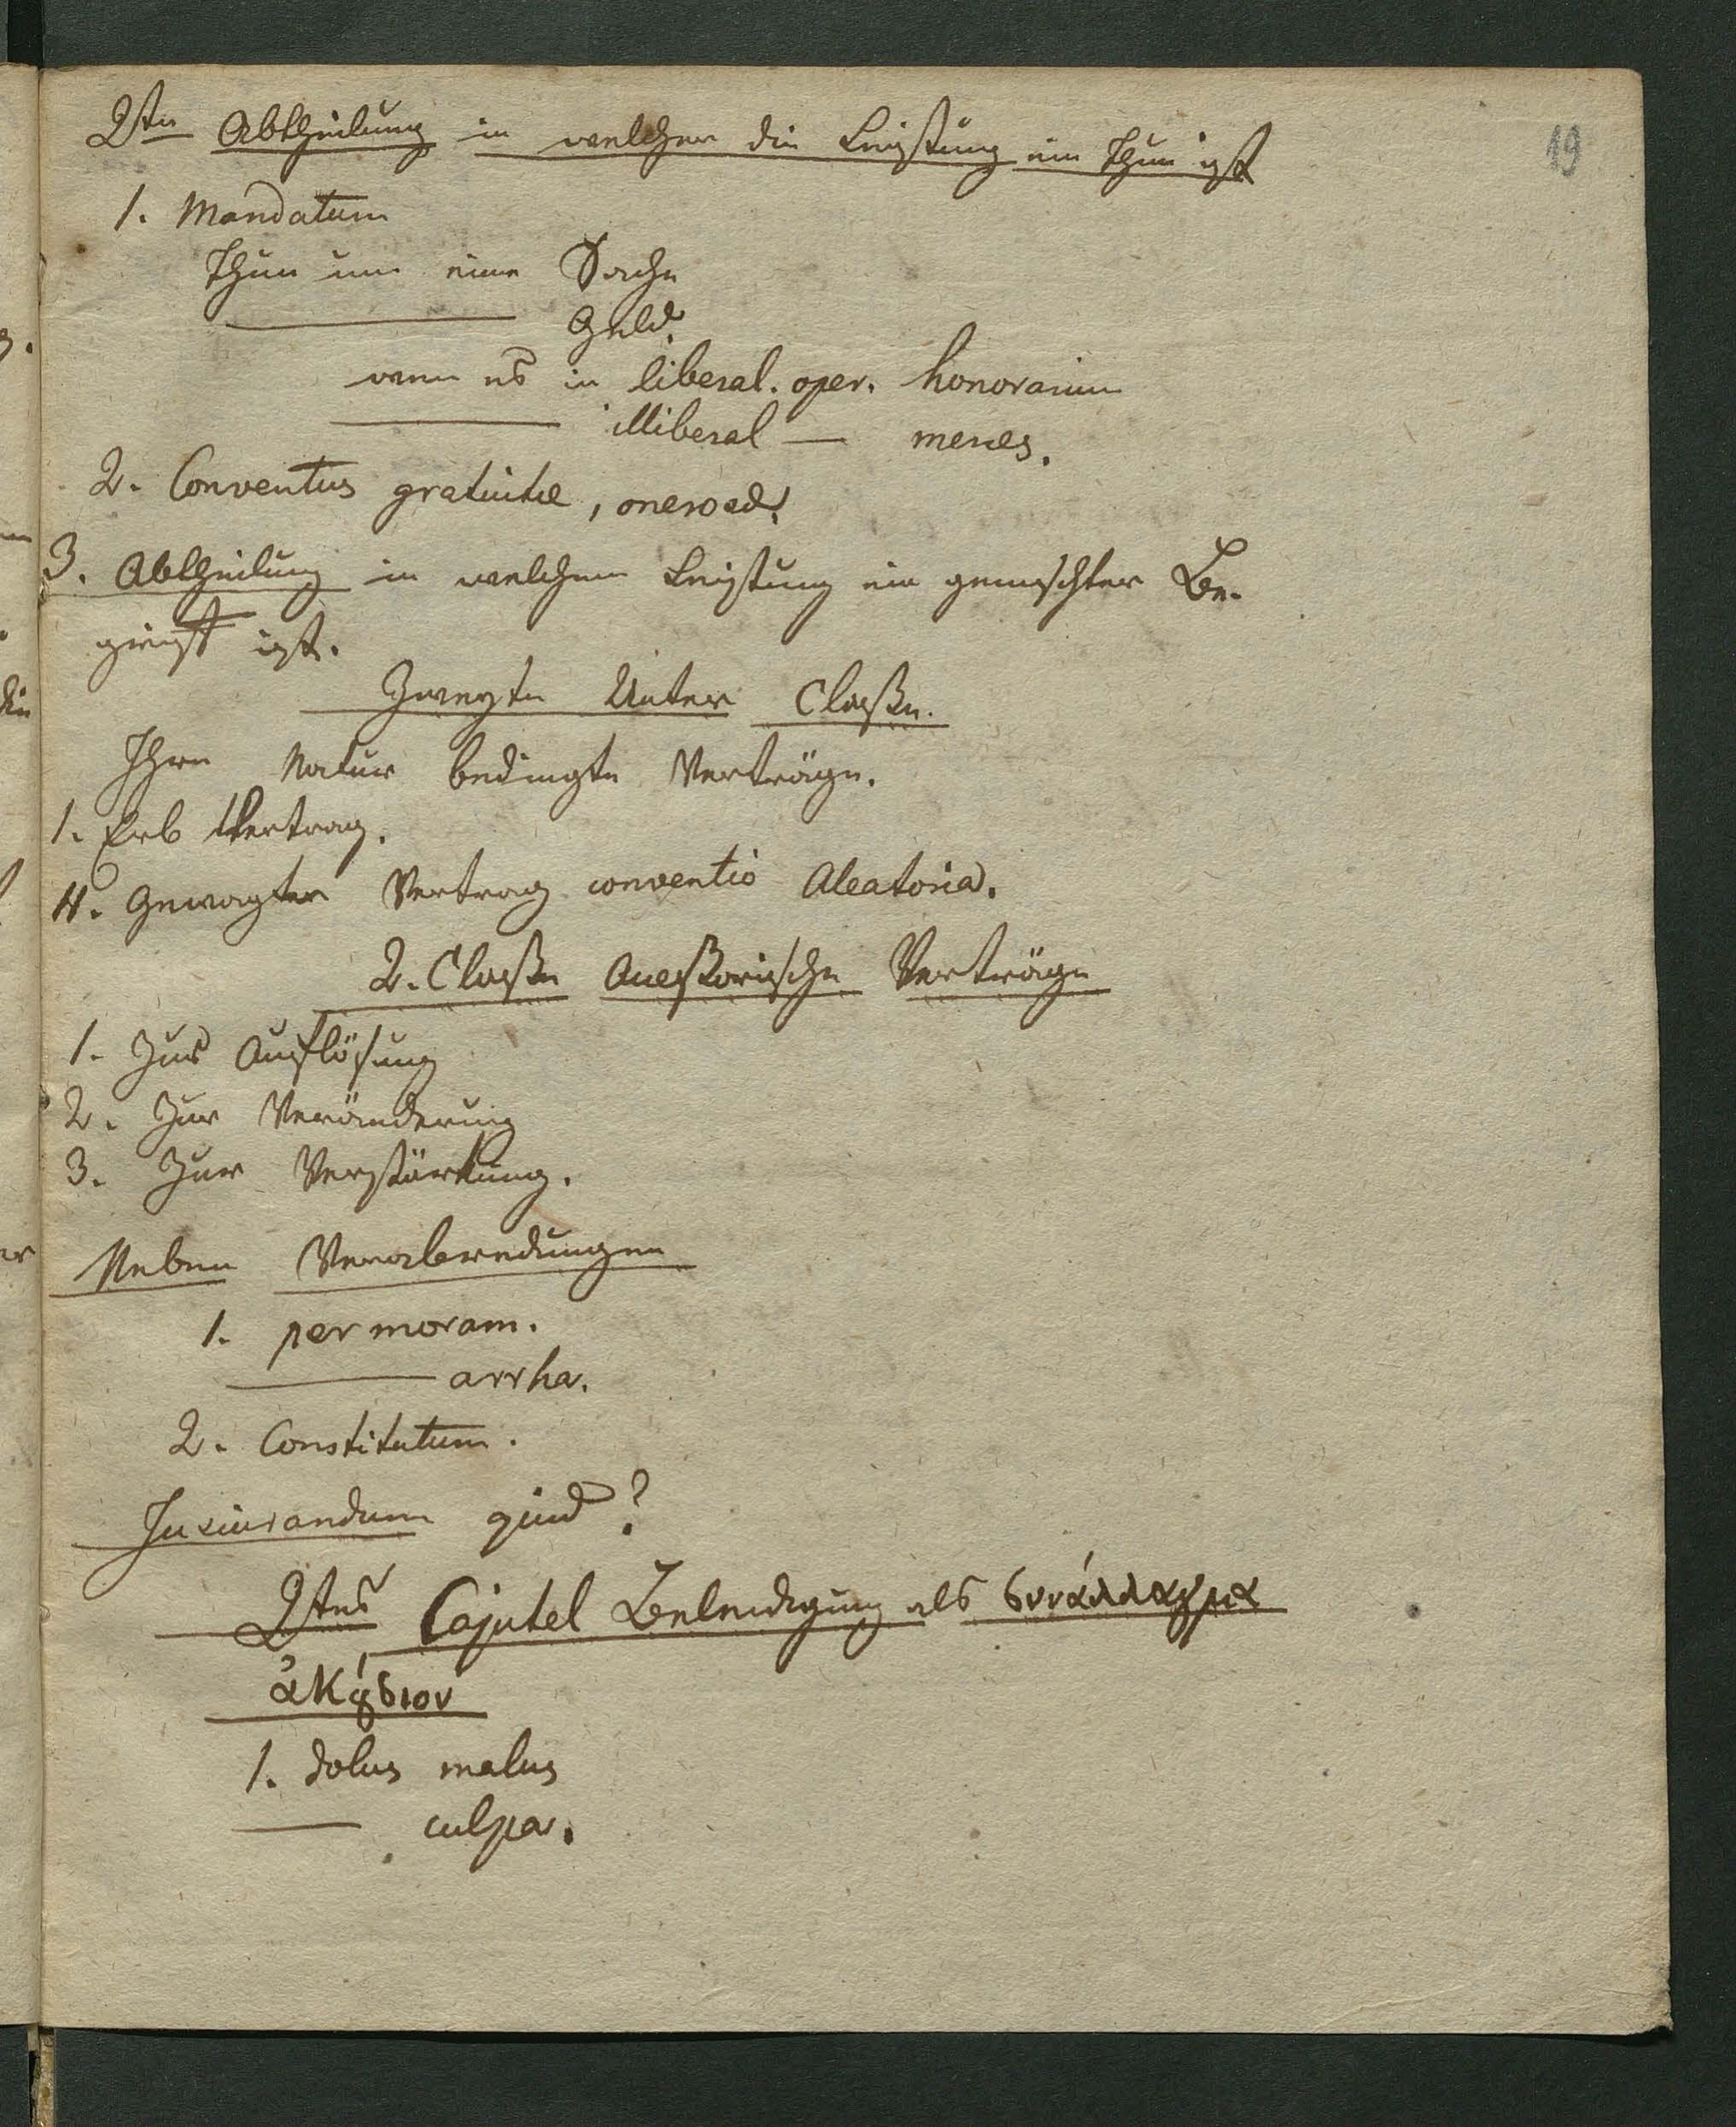 19
2te Abtheilung in welcher die Leistung ein Thun ist
1. Mandatum
Thun um eine Sache
——— Geld.
wenn es in liberal. oper. honorarium
——— illiberal — merces.
2. Conventus gratuitae,
3. Abtheilung in welchem Leistung ein gemischter Be-
grieff ist.
Zweyte Unter Classe.
Ihre Natur bedingte Verträge.
1. Erb Vertrag.
II. Gewagter Vertrag conventio Aleatoria.
2. Classe Accessorische Verträge
1. Zur Auflösung
2. Zur Veränderung
3. Zur Verstärkung.
Neben Verabredungen
1. per moram.
——— arrha.
2. Constitutum.
Jusiurandum quid?
2tes Capitel Beleidigung als συνάλλαγμα
ἀκούσιον
1. dolus malus
—— culpa.